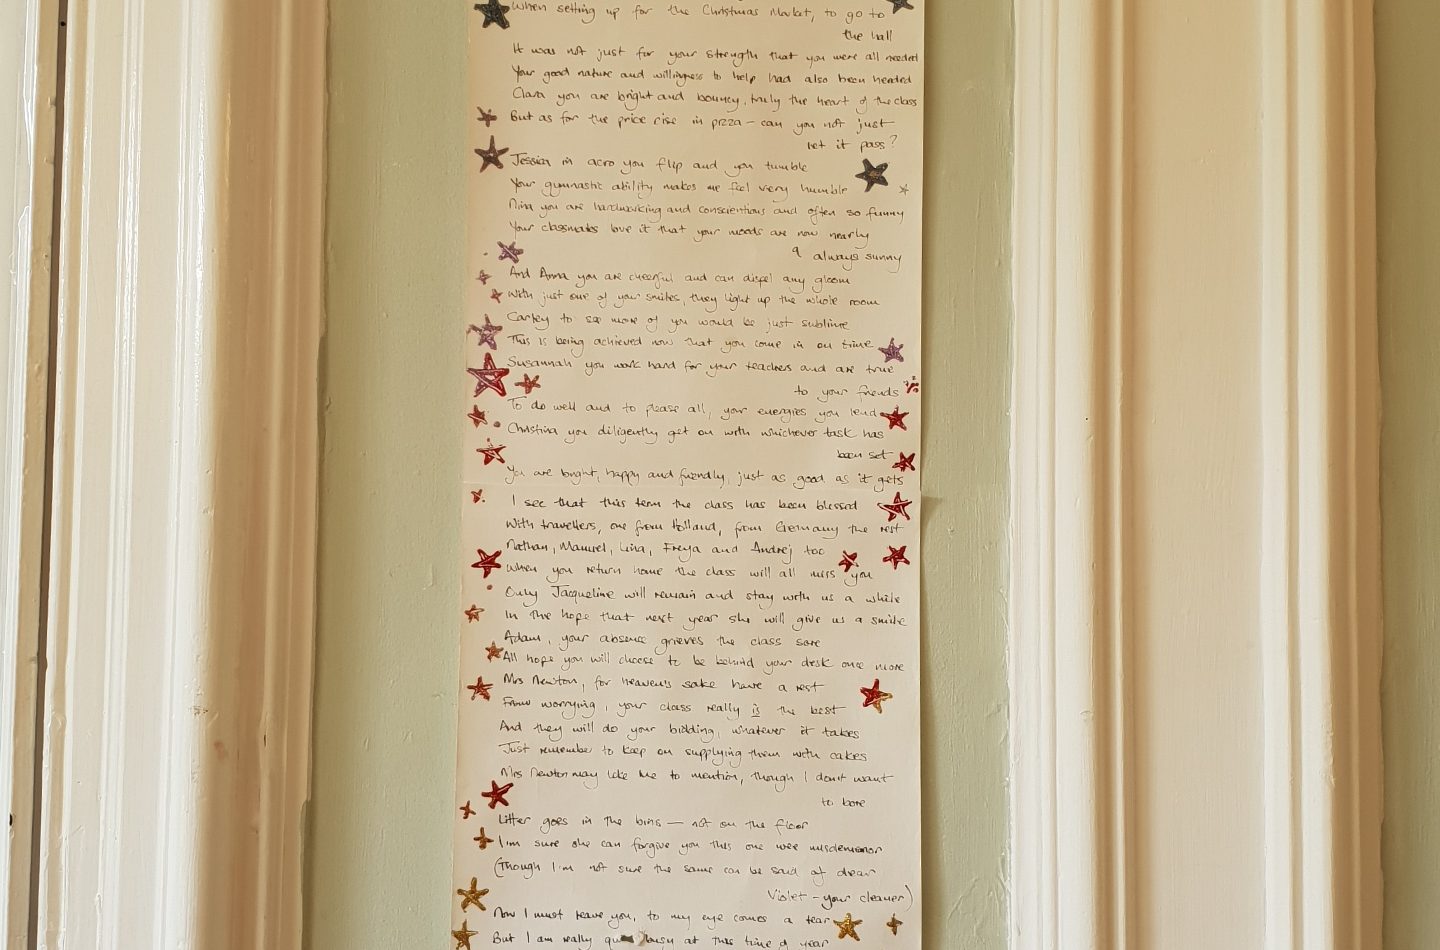 When setting up for the Christmas Market, to go to
the hall
It was not just for your strength that you were all needed
Your good nature and willingness to help had also been heeded
Clara you are bright and bouncy, truly the heart of the class
But as for the price rise in pizza - can you not just
let it pass?
Jessica in acro you flip and you tumble
Your gymnastic ability makes me feel very humble
Nina you are hardworking and conscientious and often so funny
Your classmates love it that your moods are now nearly
always sunny
And Anna you are cheerful and can dispel any gloom
With just one of your smiles, they light up the whole room
Carley to see more of you would be just sublime
This is being achieved now that you come in on time
Susannah you work hard for your teachers and are true
to your friends
To do well and to please all, your energies you lend
Christina you diligently get on with whichever task has
been set
You are bright, happy and friendly, just as good as it gets
I see that this term the class has been blessed
With travellers, one from Holland, from Germany the rest
Nathan, Manuel, Lina, Freya and Andrej too
When you return home the class will all miss you
Only Jacqueline will remain and stay with us a while
In the hope that next year she will give us a smile
Adam, your absence grieves the class sore
All hope you will choose to be behind your desk once more
Mrs Newton, for heaven's sake have a rest
From worrying, your class really is the best
And they will do your bidding, whatever it takes
Just remember to keep on supplying them with cakes
Mrs Newton may like me to mention, though I don't want
to bore
Litter goes in the bins - not on the floor
I'm sure she can forgive you this one wee misdemeanor
(Though I'm not sure the same can be said of dear
Violet - your cleaner)
Now I must leave you, to my eye comes a tear
But I am really busy at this time of year